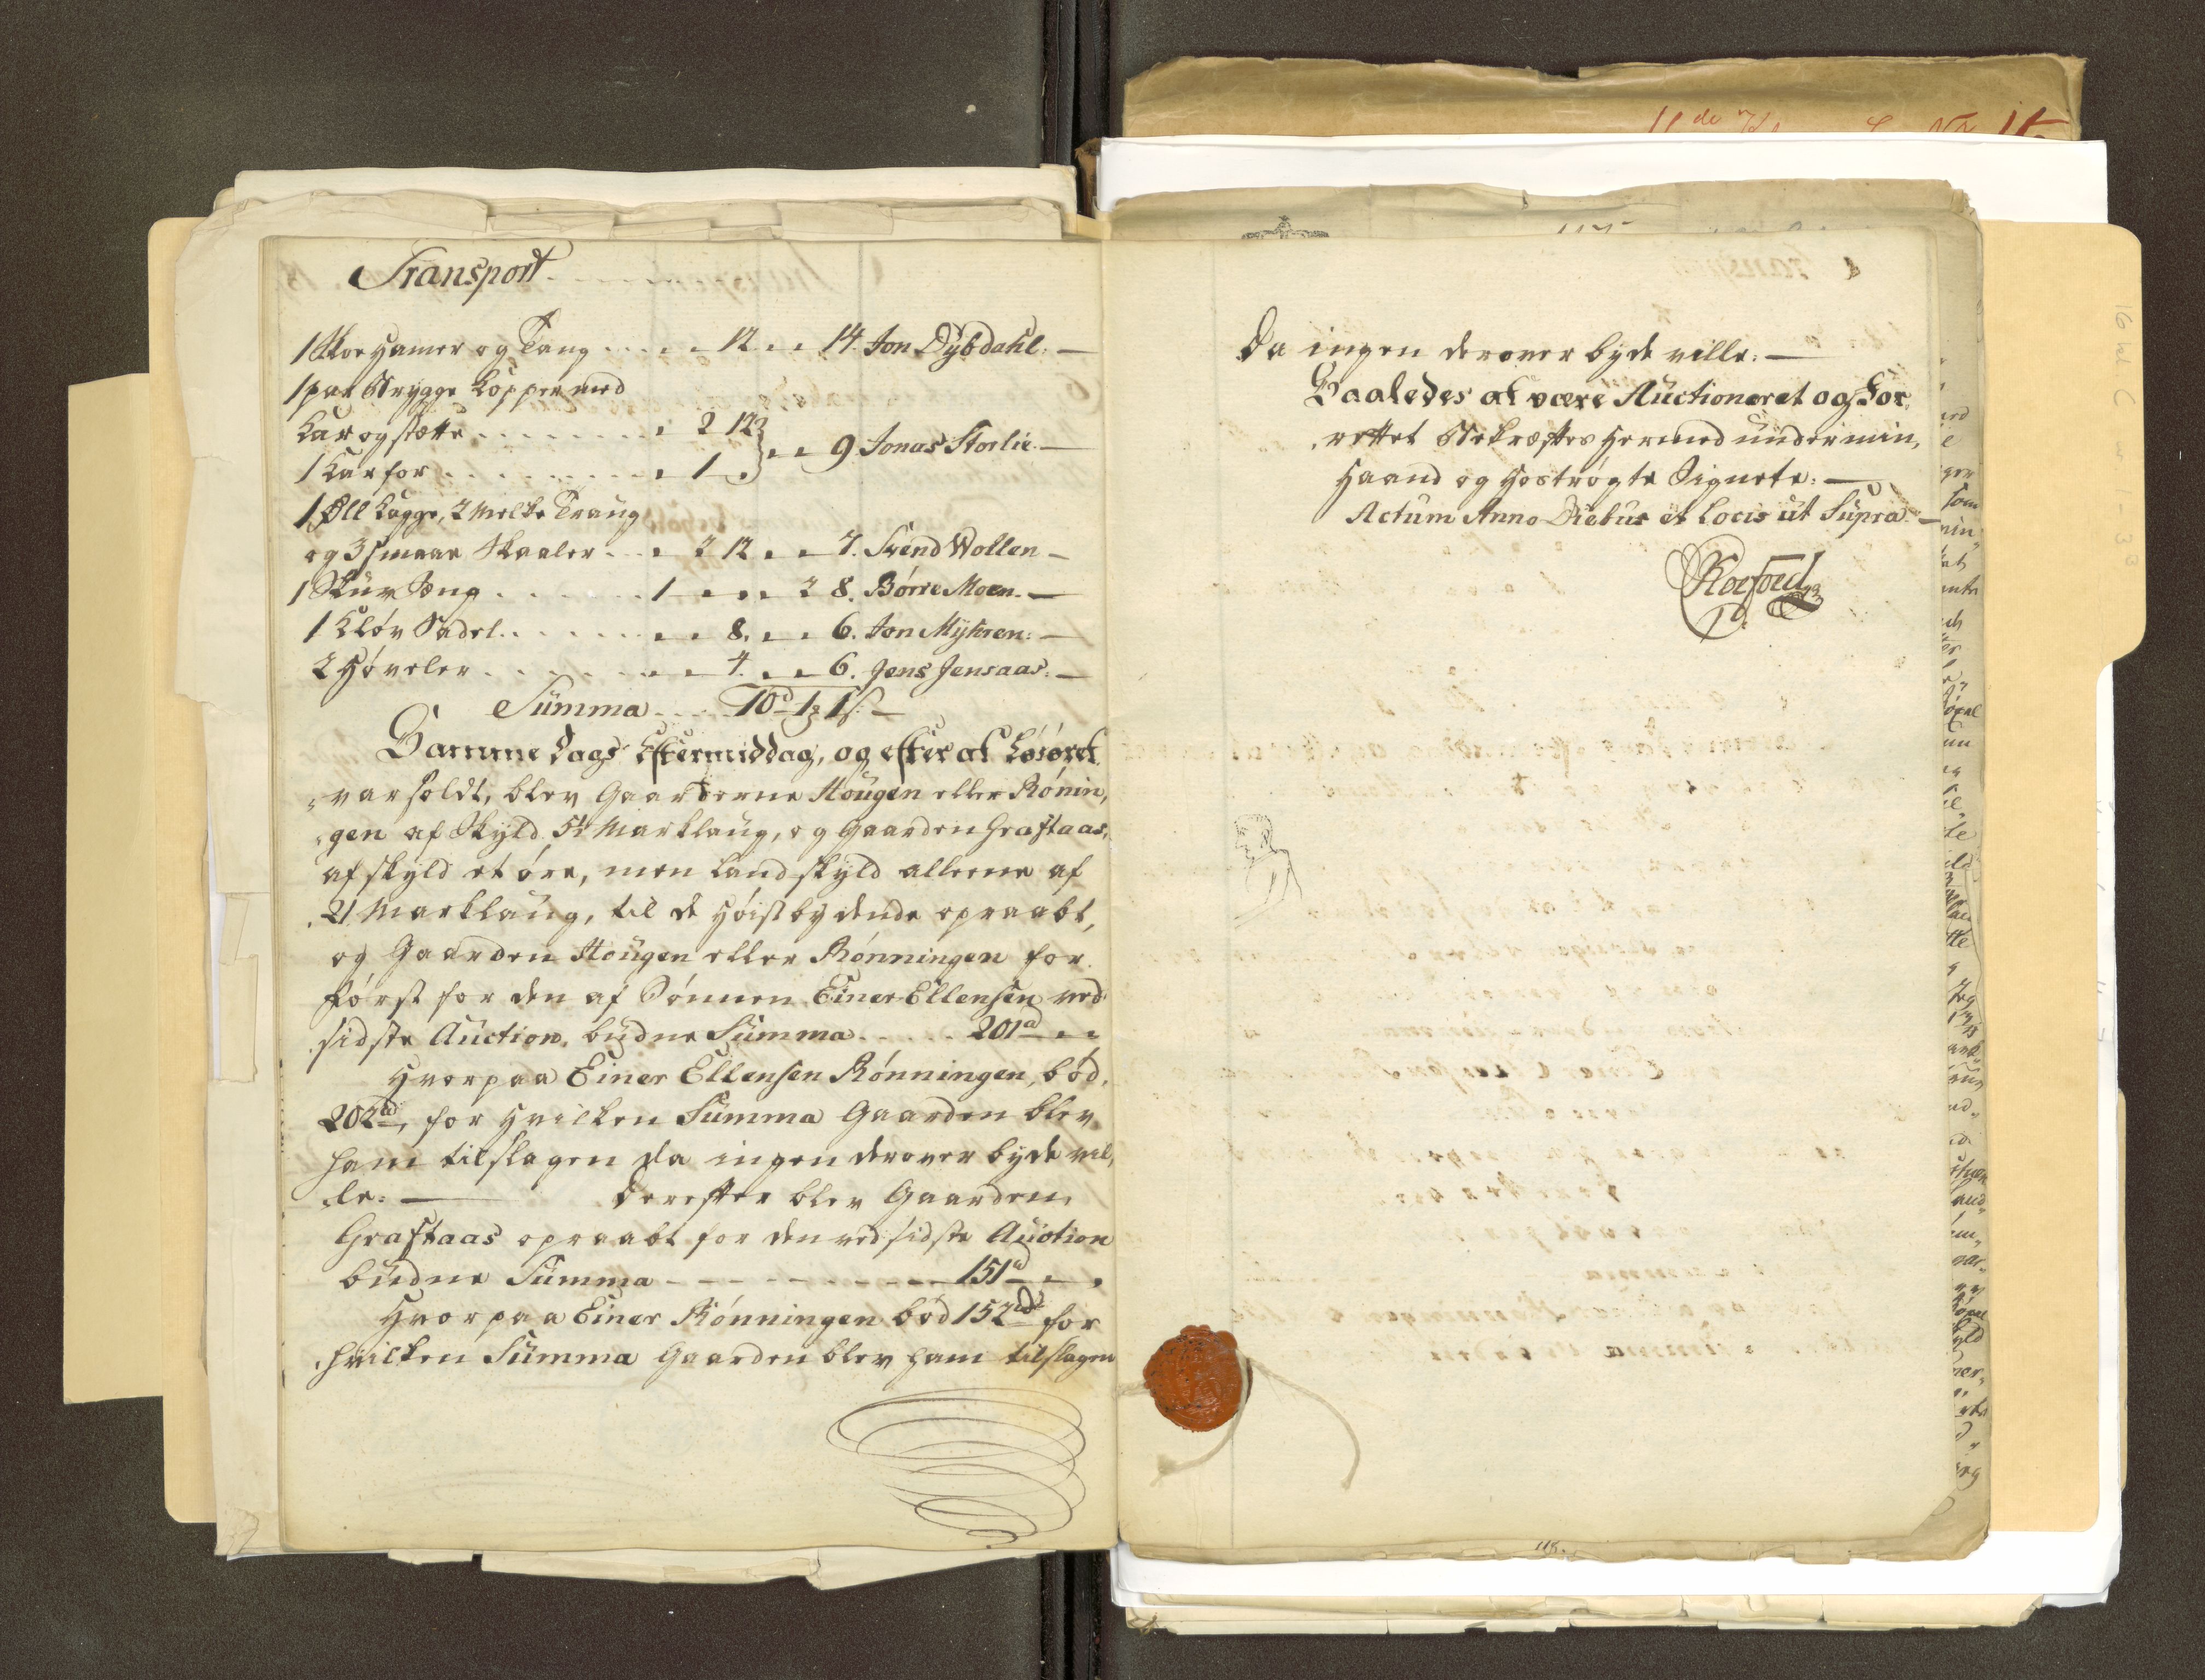 Transport
1 Skoe Hamer og Tang . . . „ „ 12 „ „ 14. Jon Dybdahl. —
1 par Brygge Kopper med
Kar og stætte . . . . . . . . „ 2 12
1 Kar for . . . . . . . . „ 1 „ } „ „ 9. Jonas Storlie. —
1 Øll Kagge, 2 Melke Traug
og 3 smaae Skaaler . . „ 2 12 „ „ 7. Svend Wollen —
1 Skuv Seng . . . . . 1 „ „ „ 2 8. Börre Moen. —
1 Kløv Sadel . . . . . . „ „ 8. „ „ 6. Jon Myhren: —
2 Høvler . . . . . . . „ „ 4. „ „ 6. Jens Jensaas: —
Summa . . . 10d 1 1 s. —
Samme Dags Eftermiddag, og efter at Løsøret
var soldt, blev Gaarderne Hougen eller Rönin,
gen af Skyld 5½ Marklaug, og Gaarden Graftaas
af skyld et øre, men Landskyld alleene af
21 Marklaug, til de Høistbydende opraabt,
og Gaarden Hougen eller Rönningen for
först for den af Sönnen Einer Ellensen ved
sidste Auction, budne Summa . . . . . 201d „ „
Hvorpaa Einer Ellensen Rönningen, bød
202d, for hvilken Summa Gaarden blev
ham tilslagen da ingen derover byde vil,
le: — Derefter blev Gaarden
Graftaas opraabt for den ved sidste Auction
budne Summa - - - - - - - - - 151d „ „
Hvorpaa Einer Rönningen bød 152d for
hvilken Summa Gaarden blev ham tilslagen
Da ingen derover byde ville: —
Saaledes at være Auctioneret og For,
rettet Bekræftes hermed under min,
Haand og hostrøgte Signete: —
Actum Anno Diebus et Locis ut Supra. —
Koefoed